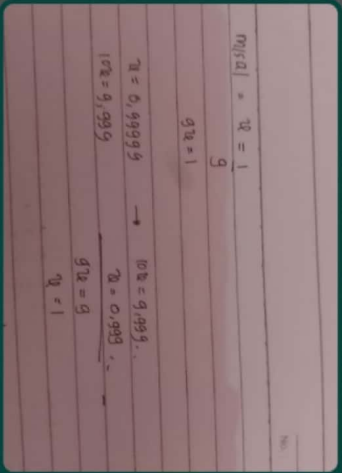 No.
misal • x = 1
9
9x = 1
x = 0,99999 → 10x = 9,999..
10x = 9,999 x = 0,999 .. -
9x = 9
x = 1